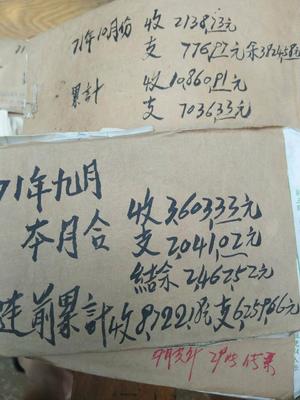 71年10月份 收2138.73元
支776.97元余3824.58元
累計 收10860.91元
支7036.33元
71年九月
本月合 收3,603.33元
支2,041.02元
結余2462.52元
連前累計收8,722.18元支6259.66元